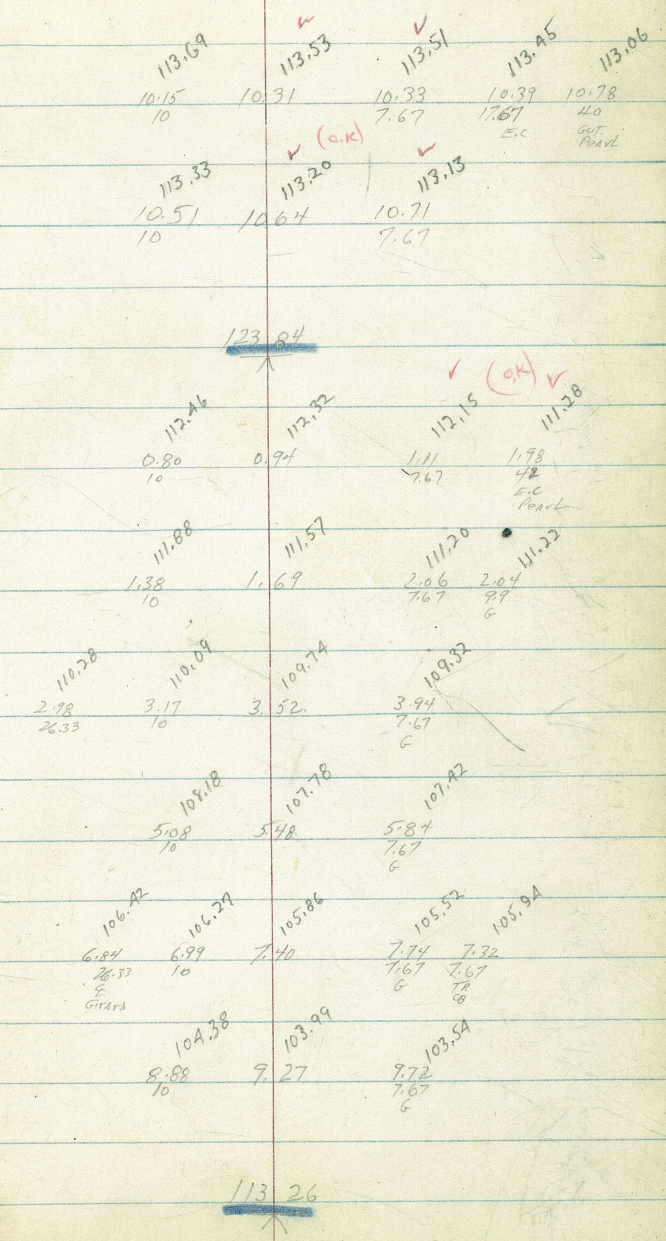 113.69 113.53 113.51 113.45 113.06
10.15 10.31 10.33 10.39 10.78
10 7.67 17.67 40
E.C GUT.
(O.K)
113.33 113.20 113.13
10.51 10.64 10.71
10 7.67
123.84
(O.K)
112.46 112.32 112.15 111.28
0.80 0.94 1.11 1.98
10 7.67 42
E.C
111.88 111.57 111.20 111.22
1.38 1.69 2.06 2.04
10 7.67 9.9
G
110.28 110.09 109.74 109.32
2.98 3.17 3.52 3.94
26.33 10 7.67
G
108.18 107.78 107.42
5.08 5.48 5.84
10 7.67
G
106.42 106.27 105.86 105.52 105.94
6.84 6.99 7.40 7.74 7.32
26.33 10 7.67 7.67
G TP
CB
104.38 103.99 103.54
8.88 9.27 9.72
10 7.67
G
113.26